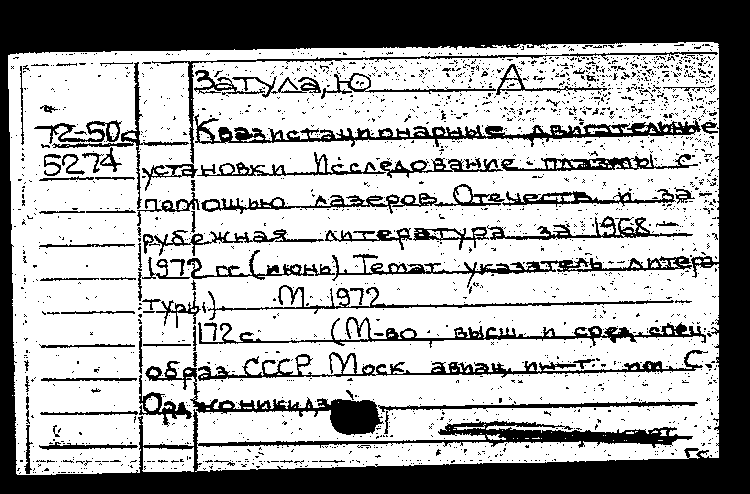 Затула, Ю А
72-50с Квазистационарные двигательные
5274 установки Исследование плазмы с
помощью лазеров. Отечеств. и за-
рубежная литература за 1968-
1972 гг. (июнь). Темат. указатель литера
туры). М., 1972
172 с. (М-во высш. и сред. спец.
образ СССР. Моск. авиац. ин-т. им. С.
Орджоникидзе)